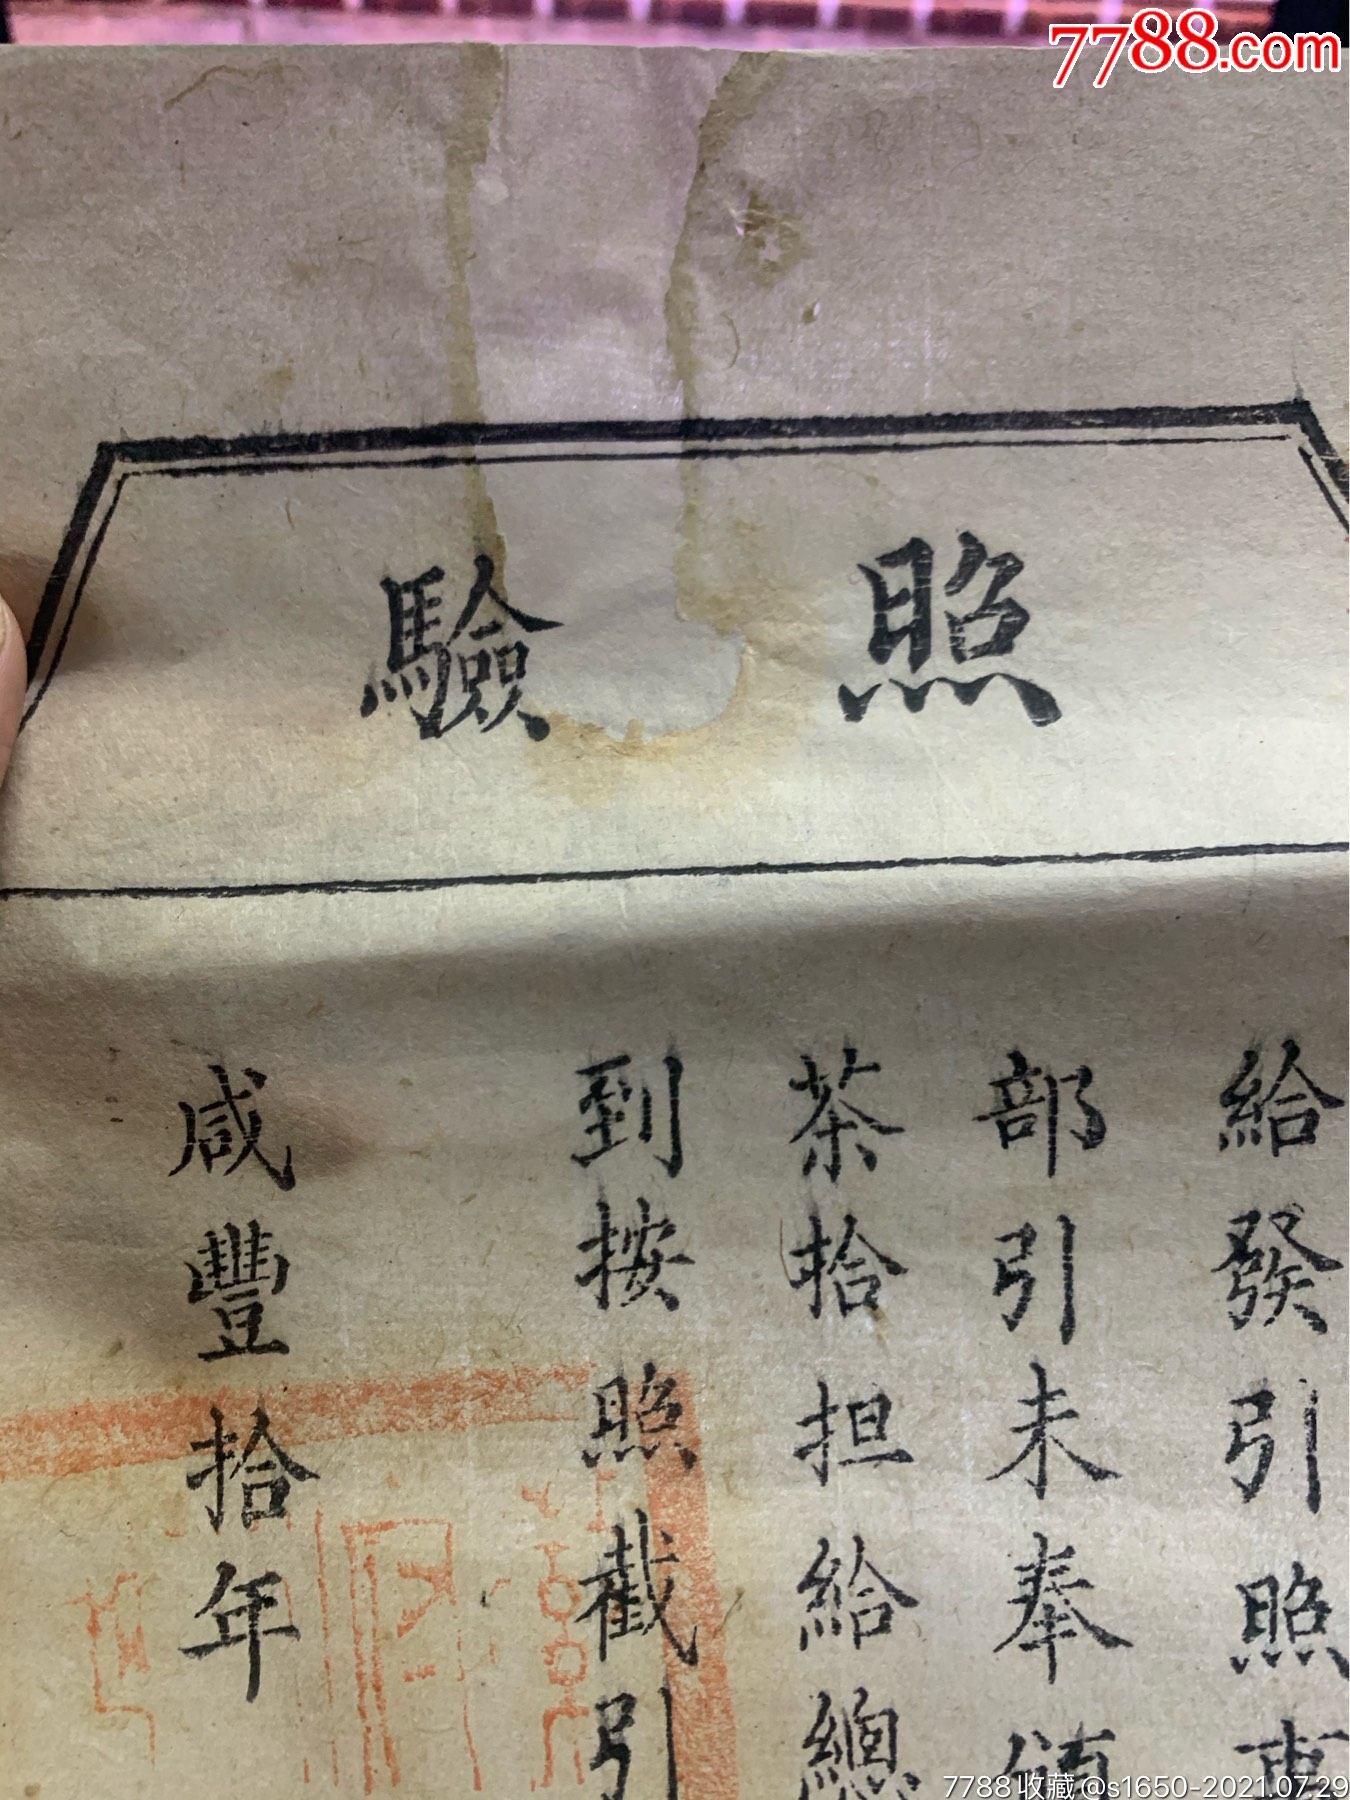 7788.com
照驗
給發引照事
部引未奉頒
茶拾担給總
到按照截引
咸豐拾年
7788收藏@s1650-2021.07.29